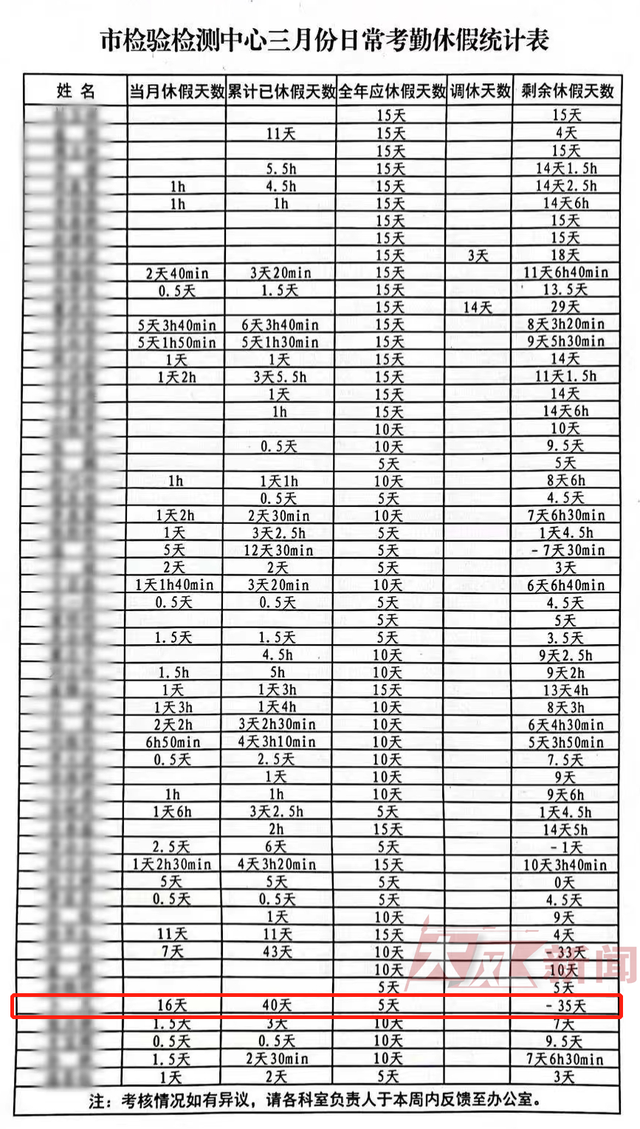 市检验检测中心三月份日常考勤休假统计表
姓 名 当月休假天数 累计已休假天数 全年应休假天数 调休天数 剩余休假天数
15天 15天
11天 15天 4天
15天 15天
5.5h 15天 14天1.5h
1h 4.5h 15天 14天2.5h
1h 1h 15天 14天6h
15天 15天
15天 15天
15天 3天 18天
2天40min 3天20min 15天 11天6h40min
0.5天 1.5天 15天 13.5天
15天 14天 29天
5天3h40min 6天3h40min 15天 8天3h20min
5天1h50min 5天1h30min 15天 9天5h30min
1天 1天 15天 14天
1天2h 3天5.5h 15天 11天1.5h
1天 15天 14天
1h 15天 14天6h
10天 10天
0.5天 10天 9.5天
5天 5天
1h 1天1h 10天 8天6h
0.5天 5天 4.5天
1天2h 2天30min 10天 7天6h30min
1天 3天2.5h 5天 1天4.5h
5天 12天30min 5天 -7天30min
2天 2天 5天 3天
1天1h40min 3天20min 10天 6天6h40min
0.5天 0.5天 5天 4.5天
5天 5天
1.5天 1.5天 5天 3.5天
4.5h 10天 9天2.5h
1.5h 5h 10天 9天2h
1天 1天3h 15天 13天4h
1天3h 1天4h 10天 8天3h
2天2h 3天2h30min 10天 6天4h30min
6h50min 4天3h10min 10天 5天3h50min
0.5天 2.5天 10天 7.5天
1天 10天 9天
1h 1h 10天 9天6h
1天6h 3天2.5h 5天 1天4.5h
2h 15天 14天5h
2.5天 6天 5天 -1天
1天2h30min 4天3h20min 15天 10天3h40min
5天 5天 5天 0天
0.5天 0.5天 5天 4.5天
1天 10天 9天
11天 11天 15天 4天
7天 43天 10天 -33天
10天 10天
5天 5天
16天 40天 5天 -35天
1.5天 3天 10天 7天
0.5天 0.5天 10天 9.5天
1.5天 2天30min 10天 7天6h30min
1天 2天 5天 3天
注：考核情况如有异议，请各科室负责人于本周内反馈至办公室。
新闻